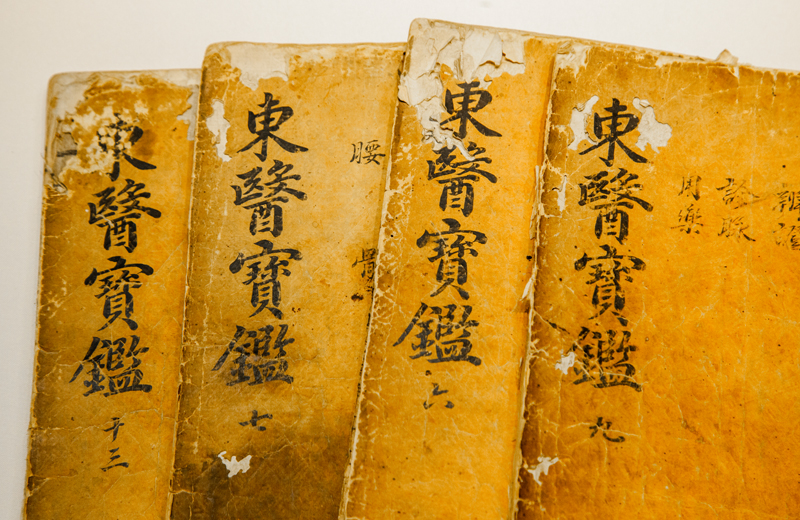 東醫寶鑑 十三
東醫寶鑑 七
腰
骨
東醫寶鑑 六
東醫寶鑑 九
用藥
診脉